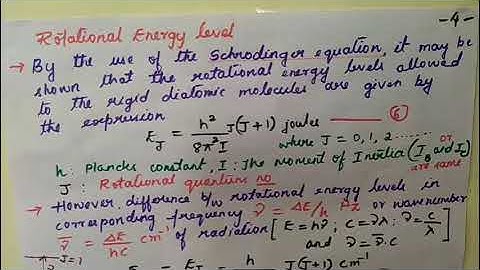 -4-
Rotational Energy level
→ By the use of the Schrodinger equation, it may be
shown that the rotational energy levels allowed
to the rigid diatomic molecules are given by
the expression
E_J = h²/8π²I J(J+1) joules —— ⑥
where J = 0, 1, 2 ......
h: Plancks constant, I: The moment of Inertia (I_B and I_C) or
are same
J: Rotational quantum no
→ However, difference b/w rotational energy levels in
corresponding frequency ν = ΔE/h Hz or wavenumber
ν̄ = ΔE/hc cm⁻¹ of radiation [E = hν; c = νλ; ν = c/λ]
and ν = ν̄.c
J=1
E_J = h J(J+1) cm⁻¹